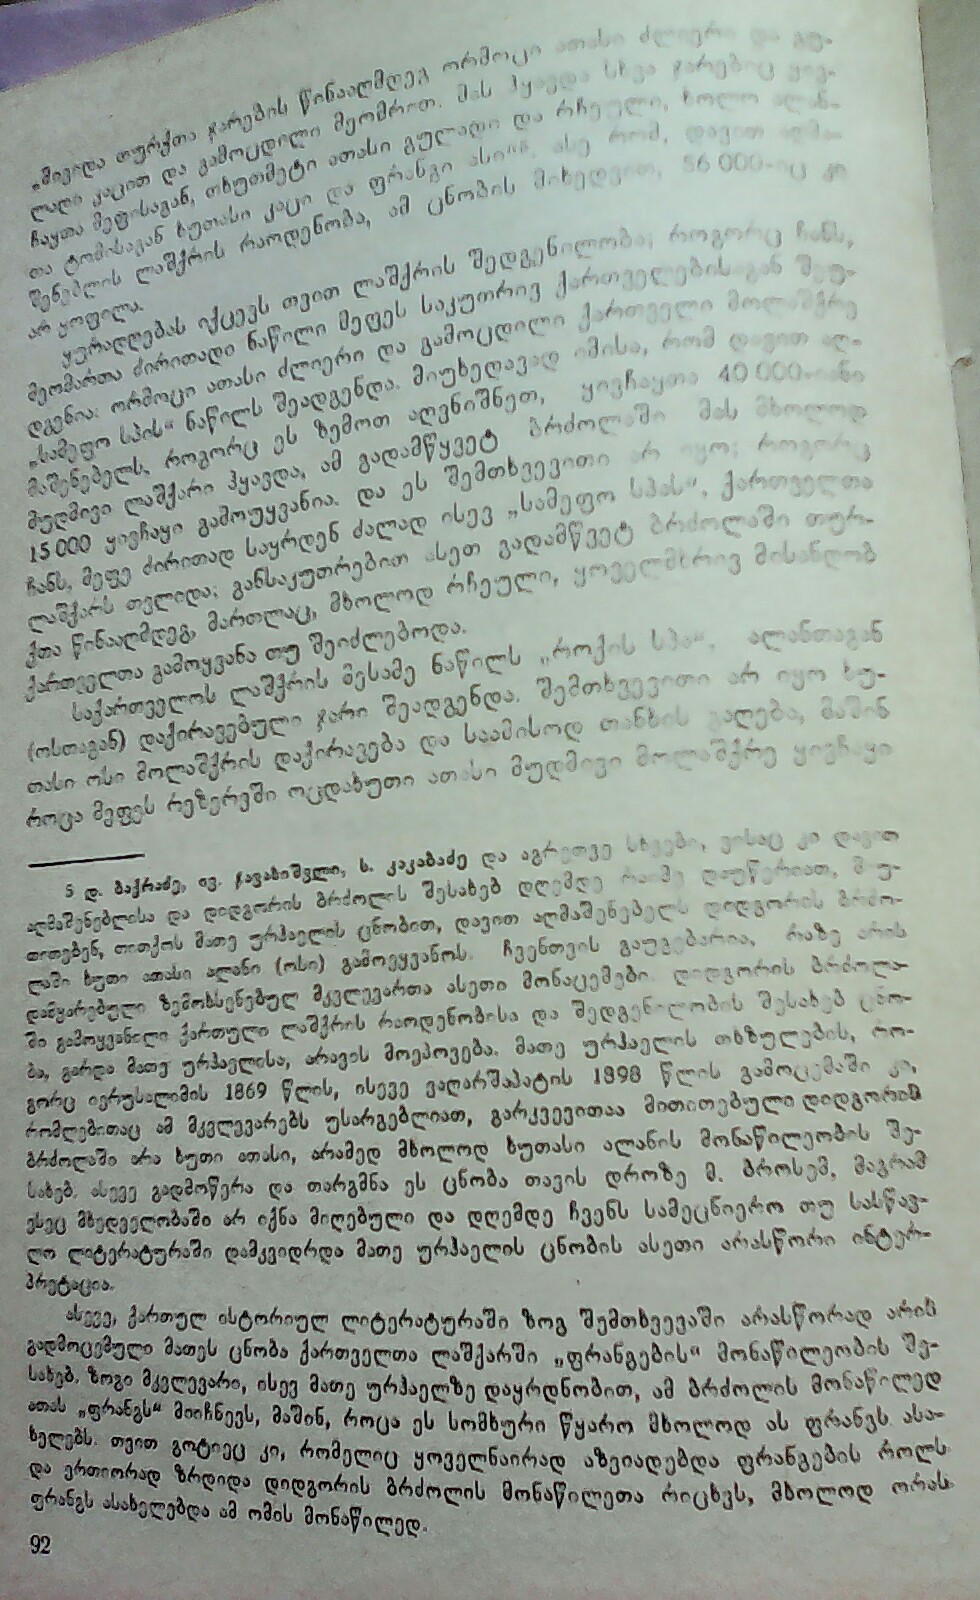 „მივიდა თურქთა ჯარების წინააღმდეგ ორმოცი ათასი ძლიერი და გუ-
ლადი კაცით და გამოცდილი მეომრით. მას ჰყავდა სხვა ჯარებიც ყივ-
ჩაყთა მეფისაგან, თხუთმეტი ათასი გულადი და რჩეული, ხოლო ალან-
თა ტომისაგან ხუთასი კაცი და ფრანგი ასი“⁵. ასე რომ, დავით აღმა-
შენებლის ლაშქრის რაოდენობა, ამ ცნობის მიხედვით, 56 000-იც კი
არ ყოფილა.
ყურადღებას იქცევს თვით ლაშქრის შედგენილობა; როგორც ჩანს,
მეომართა ძირითადი ნაწილი მეფეს საკუთრივ ქართველებისაგან შეუ-
დგენია: ორმოცი ათასი ძლიერი და გამოცდილი ქართველი მოლაშქრე
„სამეფო სპის“ ნაწილს შეადგენდა. მიუხედავად იმისა, რომ დავით აღ-
მაშენებელს, როგორც ეს ზემოთ აღვნიშნეთ, ყივჩაყთა 40 000-იანი
მუდმივი ლაშქარი ჰყავდა, ამ გადამწყვეტ ბრძოლაში მას მხოლოდ
15 000 ყივჩაყი გამოუყვანია. და ეს შემთხვევითი არ იყო; როგორც
ჩანს, მეფე ძირითად საყრდენ ძალად ისევ „სამეფო სპას“, ქართველთა
ლაშქარს თვლიდა; განსაკუთრებით ასეთ გადამწვეტ ბრძოლაში თურ-
ქთა წინააღმდეგ, მართლაც, მხოლოდ რჩეული, ყოველმხრივ მისანდობ
ქართველთა გამოყვანა თუ შეიძლებოდა.
საქართველოს ლაშქრის მესამე ნაწილს „როქის სპა“, ალანთაგან
(ოსთაგან) დაქირავებული ჯარი შეადგენდა. შემთხვევითი არ იყო ხუ-
თასი ოსი მოლაშქრის დაქირავება და საამისოდ თანხის გაღება, მაშინ
როცა მეფეს რეზერვში ოცდახუთი ათასი მუდმივი მოლაშქრე ყივჩაყი
5 დ. ბაქრაძე, ივ. ჯავახიშვლი, ს. კაკაბაძე და აგრეთვე სხვები, ვისაც კი დავით
აღმაშენებლისა და დიდგორის ბრძოლის შესახებ დღემდე რაიმე დაუწერიათ, მ უ-
თითებენ, თითქოს მათე ურჰაელის ცნობით, დავით აღმაშენებელს დიდგორის ბრძო-
ლაში ხუთი ათასი ალანი (ოსი) გამოეყვანოს. ჩვენთვის გაუგებარია, რაზე არის
დამყარებული ზემოხსენებულ მკვლევართა ასეთი მონაცემები. დიდგორის ბრძოლა-
ში გამოყვანილი ქართული ლაშქრის რაოდენობისა და შედგენილობის შესახებ ცნო-
ბა, გარდა მათე ურჰაელისა, არავის მოეპოვება. მათე ურჰაელის თხზულების, რო-
გორც იერუსალიმის 1869 წლის, ისევე ვაღარშაპატის 1898 წლის გამოცემაში კი,
რომლებითაც ამ მკვლევარებს უსარგებლიათ, გარკვევითაა მითითებული დიდგორის
ბრძოლაში არა ხუთი ათასი, არამედ მხოლოდ ხუთასი ალანის მონაწილეობის შე-
სახებ. ასევე გადმოწერა და თარგმნა ეს ცნობა თავის დროზე მ. ბროსემ, მაგრამ
ესეც მხედველობაში არ იქნა მიღებული და დღემდე ჩვენს სამეცნიერო თუ სასწავ-
ლო ლიტერატურაში დამკვიდრდა მათე ურჰაელის ცნობის ასეთი არასწორი ინტერ-
პრეტაცია.
ასევე, ქართულ ისტორიულ ლიტერატურაში ზოგ შემთხვევაში არასწორად არის
გადმოცემული მათეს ცნობა ქართველთა ლაშქარში „ფრანგების“ მონაწილეობის შე-
სახებ. ზოგი მკვლევარი, ისევ მათე ურჰაელზე დაყრდნობით, ამ ბრძოლის მონაწილედ
ათას „ფრანგს“ მიიჩნევს, მაშინ, როცა ეს სომხური წყარო მხოლოდ ას ფრანგს ასა-
ხელებს. თვით გოტიეც კი, რომელიც ყოველნაირად აზვიადებდა ფრანგების როლს
და ერთიორად ზრდიდა დიდგორის ბრძოლის მონაწილეთა რიცხვს, მხოლოდ ორას
ფრანგს ასახელებდა ამ ომის მონაწილედ.
92